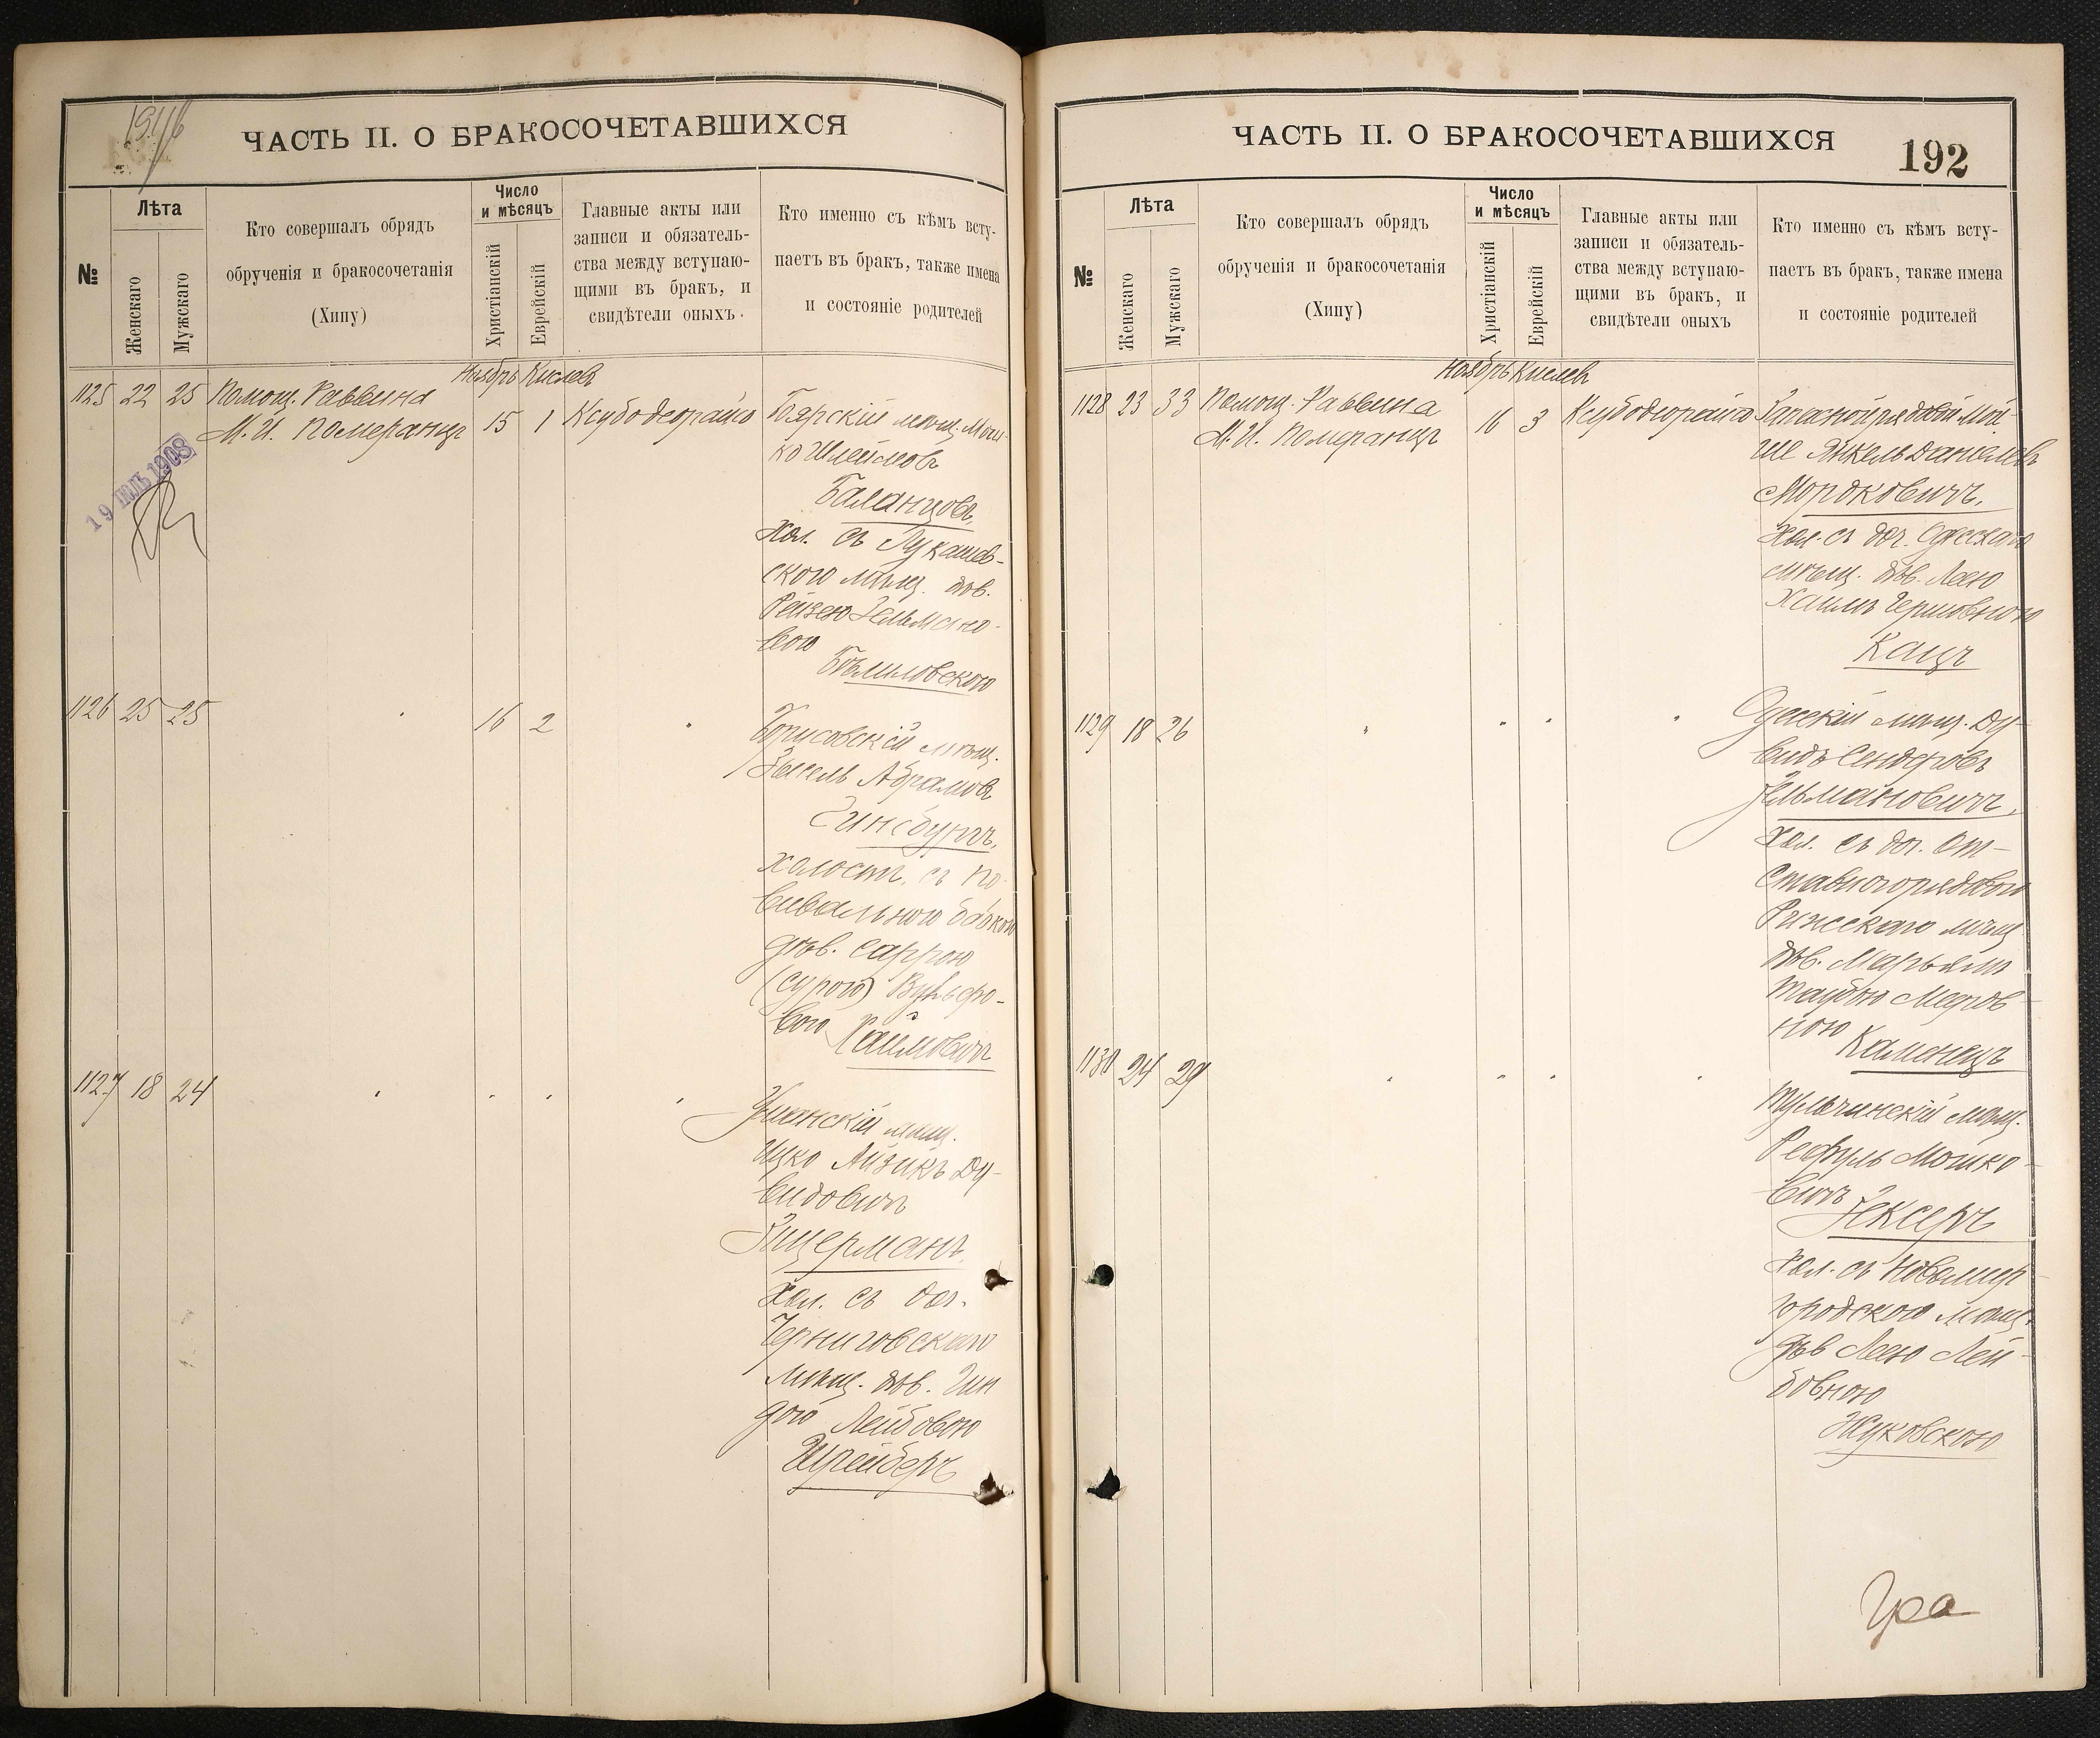 ЧАСТЬ II. О БРАКОСОЧЕТАВШИХСЯ
№
Лѣта
Женскаго
Мужскаго
Кто совершалъ обрядъ
обрученія и бракосочетанія
(Хипу)
Число
и мѣсяцъ
Христіанскій
Еврейскій
Главные акты или
записи и обязатель-
ства между вступаю-
щими въ бракъ, и
свидѣтели оныхъ.
Кто именно съ кѣмъ всту-
паетъ въ бракъ, также имена
и состояніе родителей
Ноябрь Кислев
1125 22 25 Помощ. Раввина
М. И. Померанцъ 15 1 Ксубодеорайсо
Боярскій мѣщ. Мош-
ко Шлеймовъ
Баланцовъ,
хол. съ Лукашев-
скою мѣщ. дѣв.
Рейзею Зельмано-
вою
Бѣлиловскою
19 1908
1126 25 25 " 16 2 "
Борисовскій мѣщ.
Зысель Абрамовъ
Гинсбургъ,
холост. съ по-
вивальною бабкою
дѣв. Саррою
(Сурою) Вульфо-
вою
Хаимовичъ
1127 18 24 " " " "
Уманскій мѣщ.
Ицко Айзикъ Ду-
видовичъ
Зицерманъ,
хол. съ доч.
Черниговскаго
мѣщ. дѣв. Гин
дою Лейбовою
Шрейберъ
ЧАСТЬ II. О БРАКОСОЧЕТАВШИХСЯ
192
№
Лѣта
Женскаго
Мужскаго
Кто совершалъ обрядъ
обрученія и бракосочетанія
(Хипу)
Число
и мѣсяцъ
Христіанскій
Еврейскій
Главные акты или
записи и обязатель-
ства между вступаю-
щими въ бракъ, и
свидѣтели оныхъ
Кто именно съ кѣмъ всту-
паетъ въ бракъ, также имена
и состояніе родителей
Ноябрь Кислев
1128 23 33 Помощ. Раввина
М. И. Померанцъ 16 3 Ксубодеорайсо
Запасной рядовой Мой-
ше Янкель Даніилевъ
Мордковичъ,
хол. съ доч. Одесскаго
мѣщ. дѣв. Леею
Хаимъ Гершовною
Кацъ
1129 18 26 " " " "
Одесскій мѣщ. Ду-
видъ Сендеровъ
Зельмановичъ,
хол. съ доч. От-
ставного рядового
Рижскаго мѣщ.
дѣв. Марьямъ
Таубою Мееров-
ною
Каменецъ
1130 24 29 " " " "
Тульчинскій мѣщ.
Рефуль Мошко-
вичъ
Зексеръ
хол. съ Новомир
городскою мѣщ.
дѣв Леею Лей-
бовною
Жуковскою